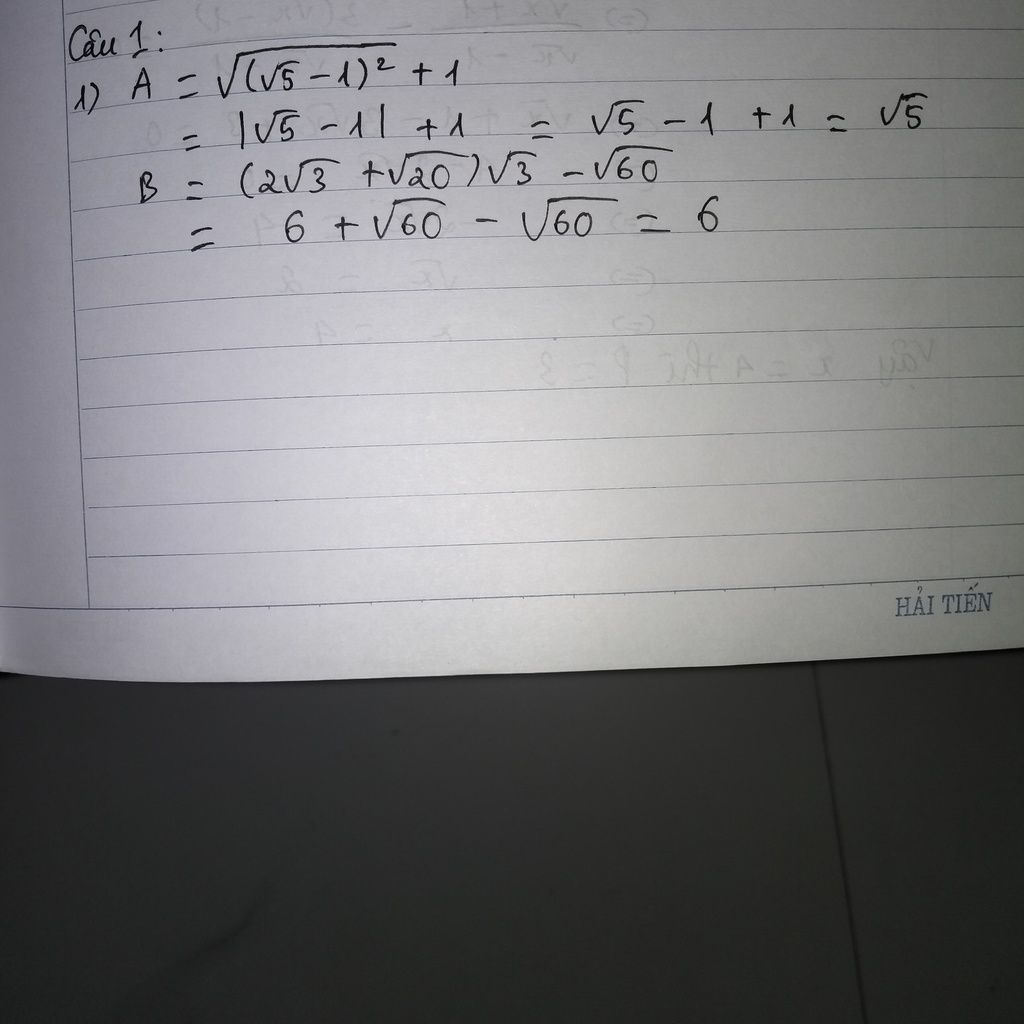 Câu 1:
1) A = √(√5 - 1)² + 1
= |√5 - 1| + 1 = √5 - 1 + 1 = √5
B = (2√3 + √20)√3 - √60
= 6 + √60 - √60 = 6
HẢI TIẾN